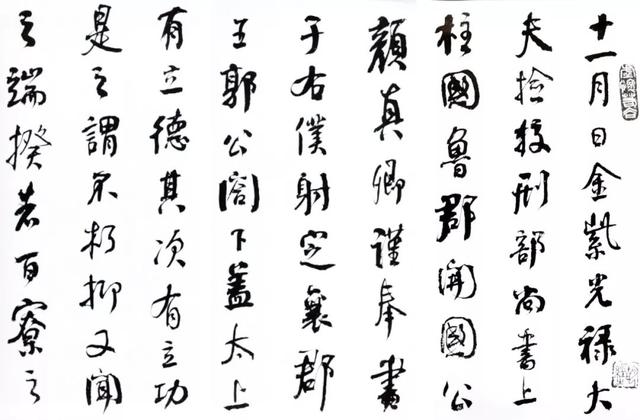 十一月日金紫光禄大
夫捡校刑部尚書上
柱國魯郡開國公
顔真卿謹奉書
于右僕射定襄郡
王郭公閤下蓋太上
有立德其次有立功
是之謂不朽抑又聞
之端揆者百寮之